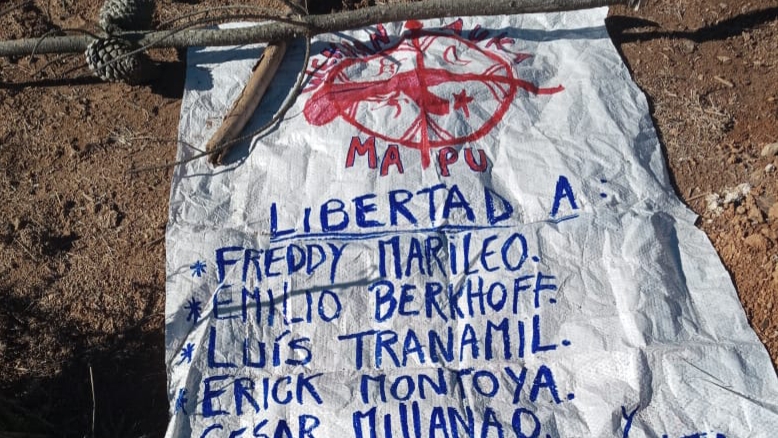 MAPU
LIBERTAD A:
* FREDDY MARILEO.
* EMILIO BERKHOFF.
* LUÍS TRANAMIL.
* ERICK MONTOYA.
CESAR MILLANAO. Y